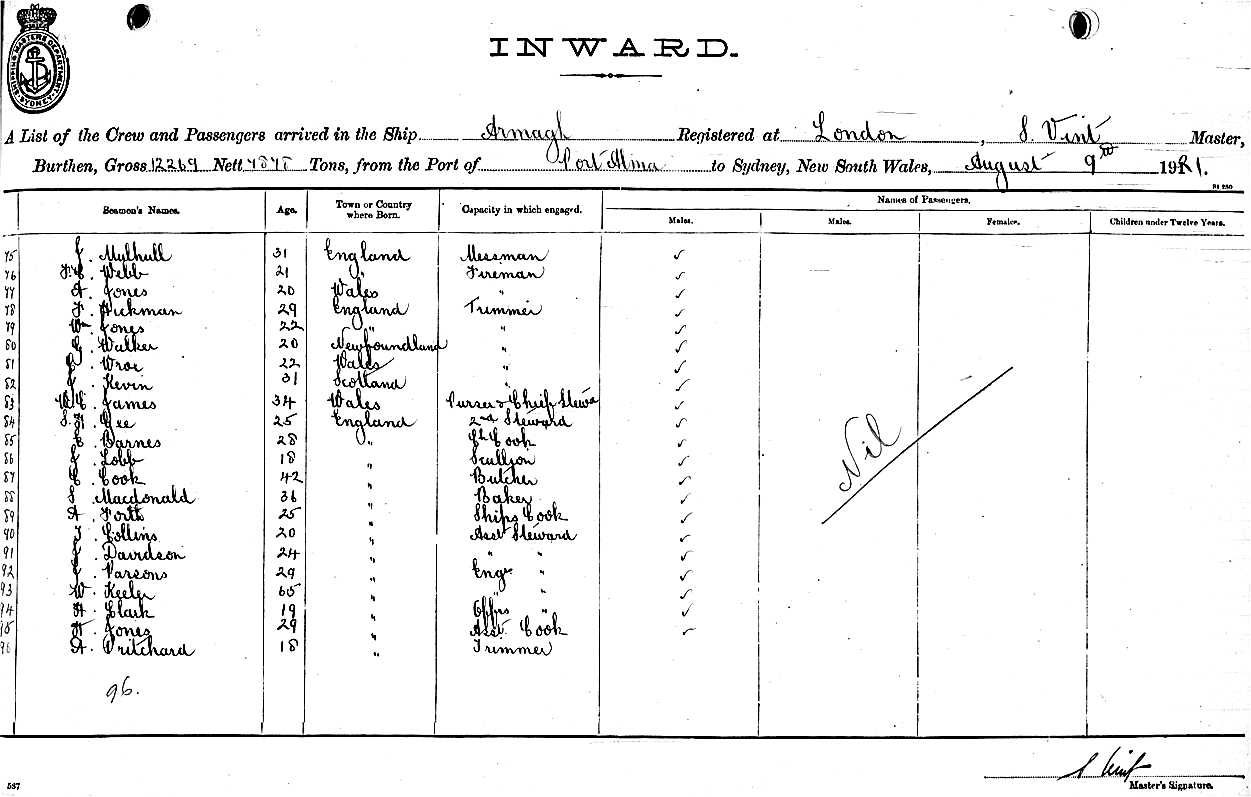 SHIPPING MASTERS DEPARTMENT SYDNEY
INWARD.
A List of the Crew and Passengers arrived in the Ship Armagh Registered at London, S. Vint Master,
Burthen, Gross 12269 Nett Tons, from the Port of Port Alma to Sydney, New South Wales, August 9th 19
Seamen's Names. Age. Town or Country where Born. Capacity in which engaged. Names of Passengers.
Males. Males. Females. Children under Twelve Years.
75 J. Mulhull 31 England Messman ✓
76 Webb 21 " Fireman ✓
77 A. Jones 20 Wales " ✓
78 F. Hickman 29 England Trimmer ✓
79 Wm Jones 22 " " ✓
80 G. Walker 20 Newfoundland " ✓
81 Wroe 22 Wales " ✓
82 J. Kevin 31 Scotland " ✓
83 James 34 Wales Purser & Chief Stewa ✓
84 S. H. Gee 25 England 2nd Steward ✓
85 Barnes 28 " Cook ✓
86 J. Lobb 18 " Scullion ✓
87 C. Cook 42 " Butcher ✓
88 S. Macdonald 36 " Baker ✓
89 A. Forth 25 " Ships Cook ✓
90 T. Collins 20 " Asst Steward ✓
91 J. Davidson 24 " " " ✓
92 J. Parsons 29 " Engrs " ✓
93 W. Keeler 65 " " " ✓
94 A. Clark 19 " Offrs " ✓
95 Jones 29 " Asst. Cook ✓
96 A. Pritchard 18 " Trimmer
Nil
96.
S Vint
Master's Signature.
537